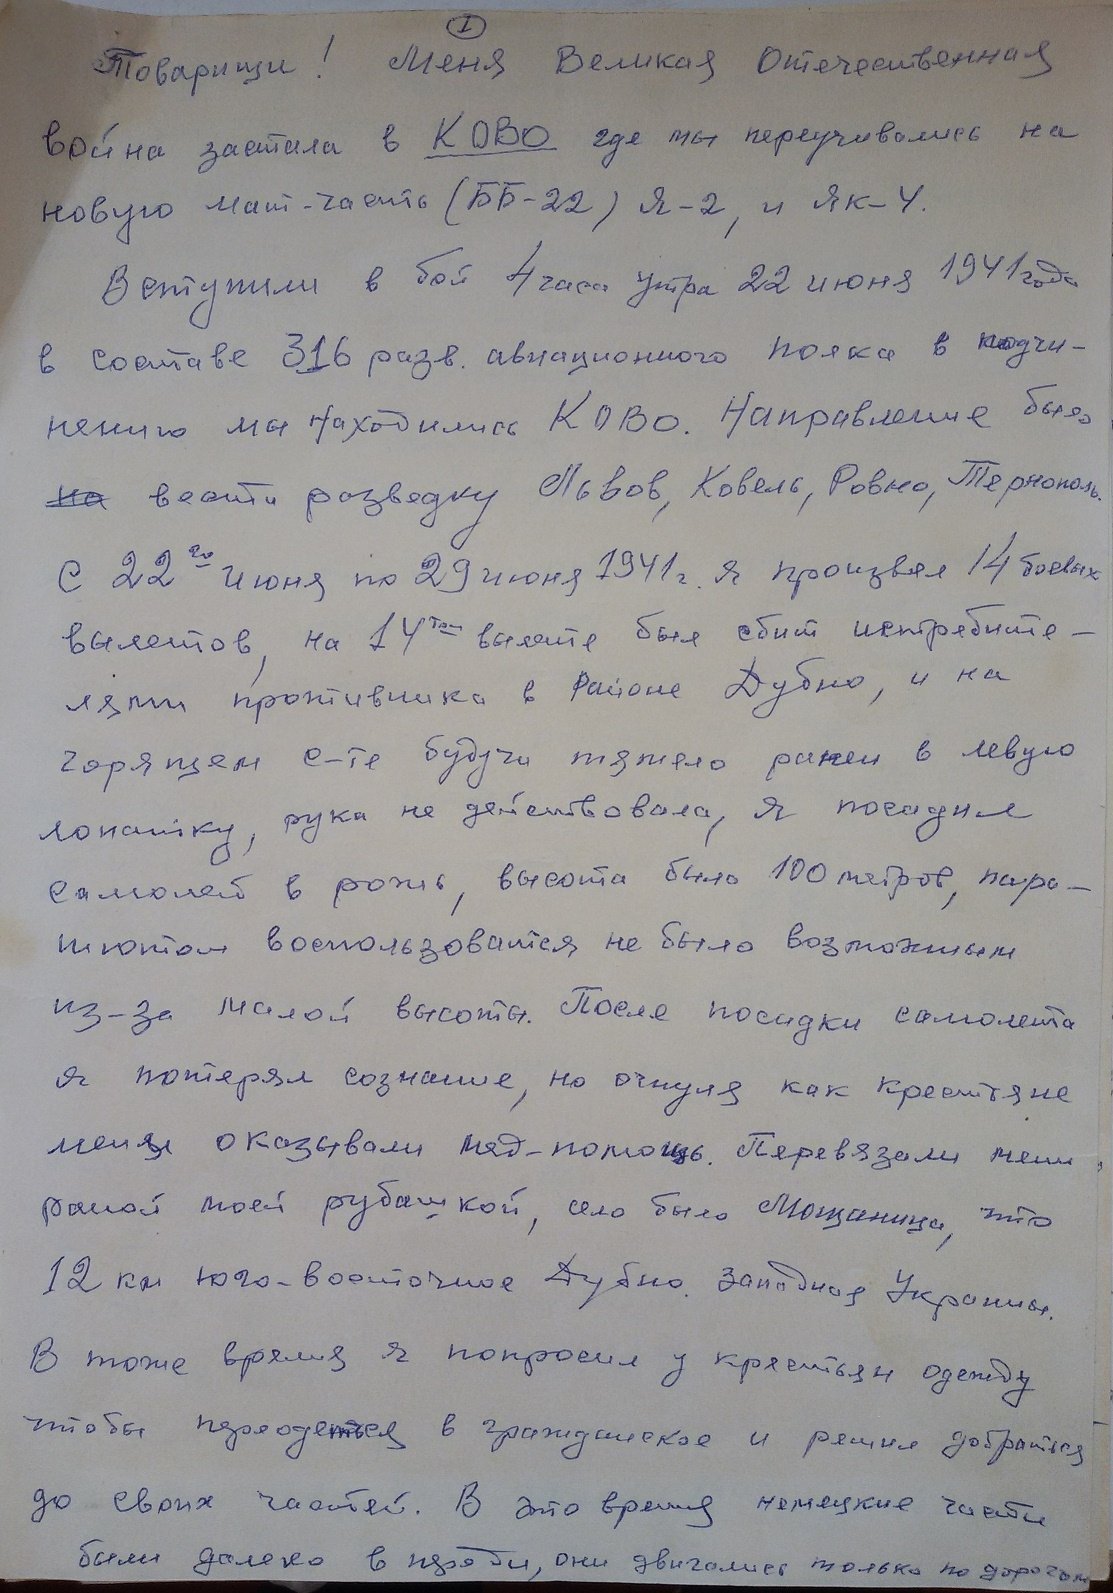 1
Товарищи! Меня Великая Отечественная
война застала в КОВО где мы переучивались на
новую мат-часть (ББ-22) Я-2, и Як-4.
Вступили в бой 4 часа утра 22 июня 1941 года
в составе 316 разв. авиационного полка в подчи-
нению мы находились КОВО. Направление было
на вести разведку Львов, Ковель, Ровно, Тернополь.
С 22го июня по 29 июня 1941 г. я произвел 14 боевых
вылетов, на 14том вылете был сбит истребите-
лями противника в районе Дубно, и на
горящем с-те будучи тяжело ранен в левую
лопатку, рука не действовала, я посадил
самолет в рожь, высота была 100 метров, пара-
шютом воспользоватся не было возможным
из-за малой высоты. После посадки самолета
я потерял сознание, но очнуля как крестьяне
меня оказывали мед-помощь. Перевязали меня
раной моей рубашкой, село было Мощаница, что
12 км юго-восточное Дубно. Западная Украины.
В тоже время я попросил у крестьян одежду
чтобы переодется в гражданское и решил добраться
до своих частей. В это время немецкие части
были далеко в переди, они двигались только по дорогам